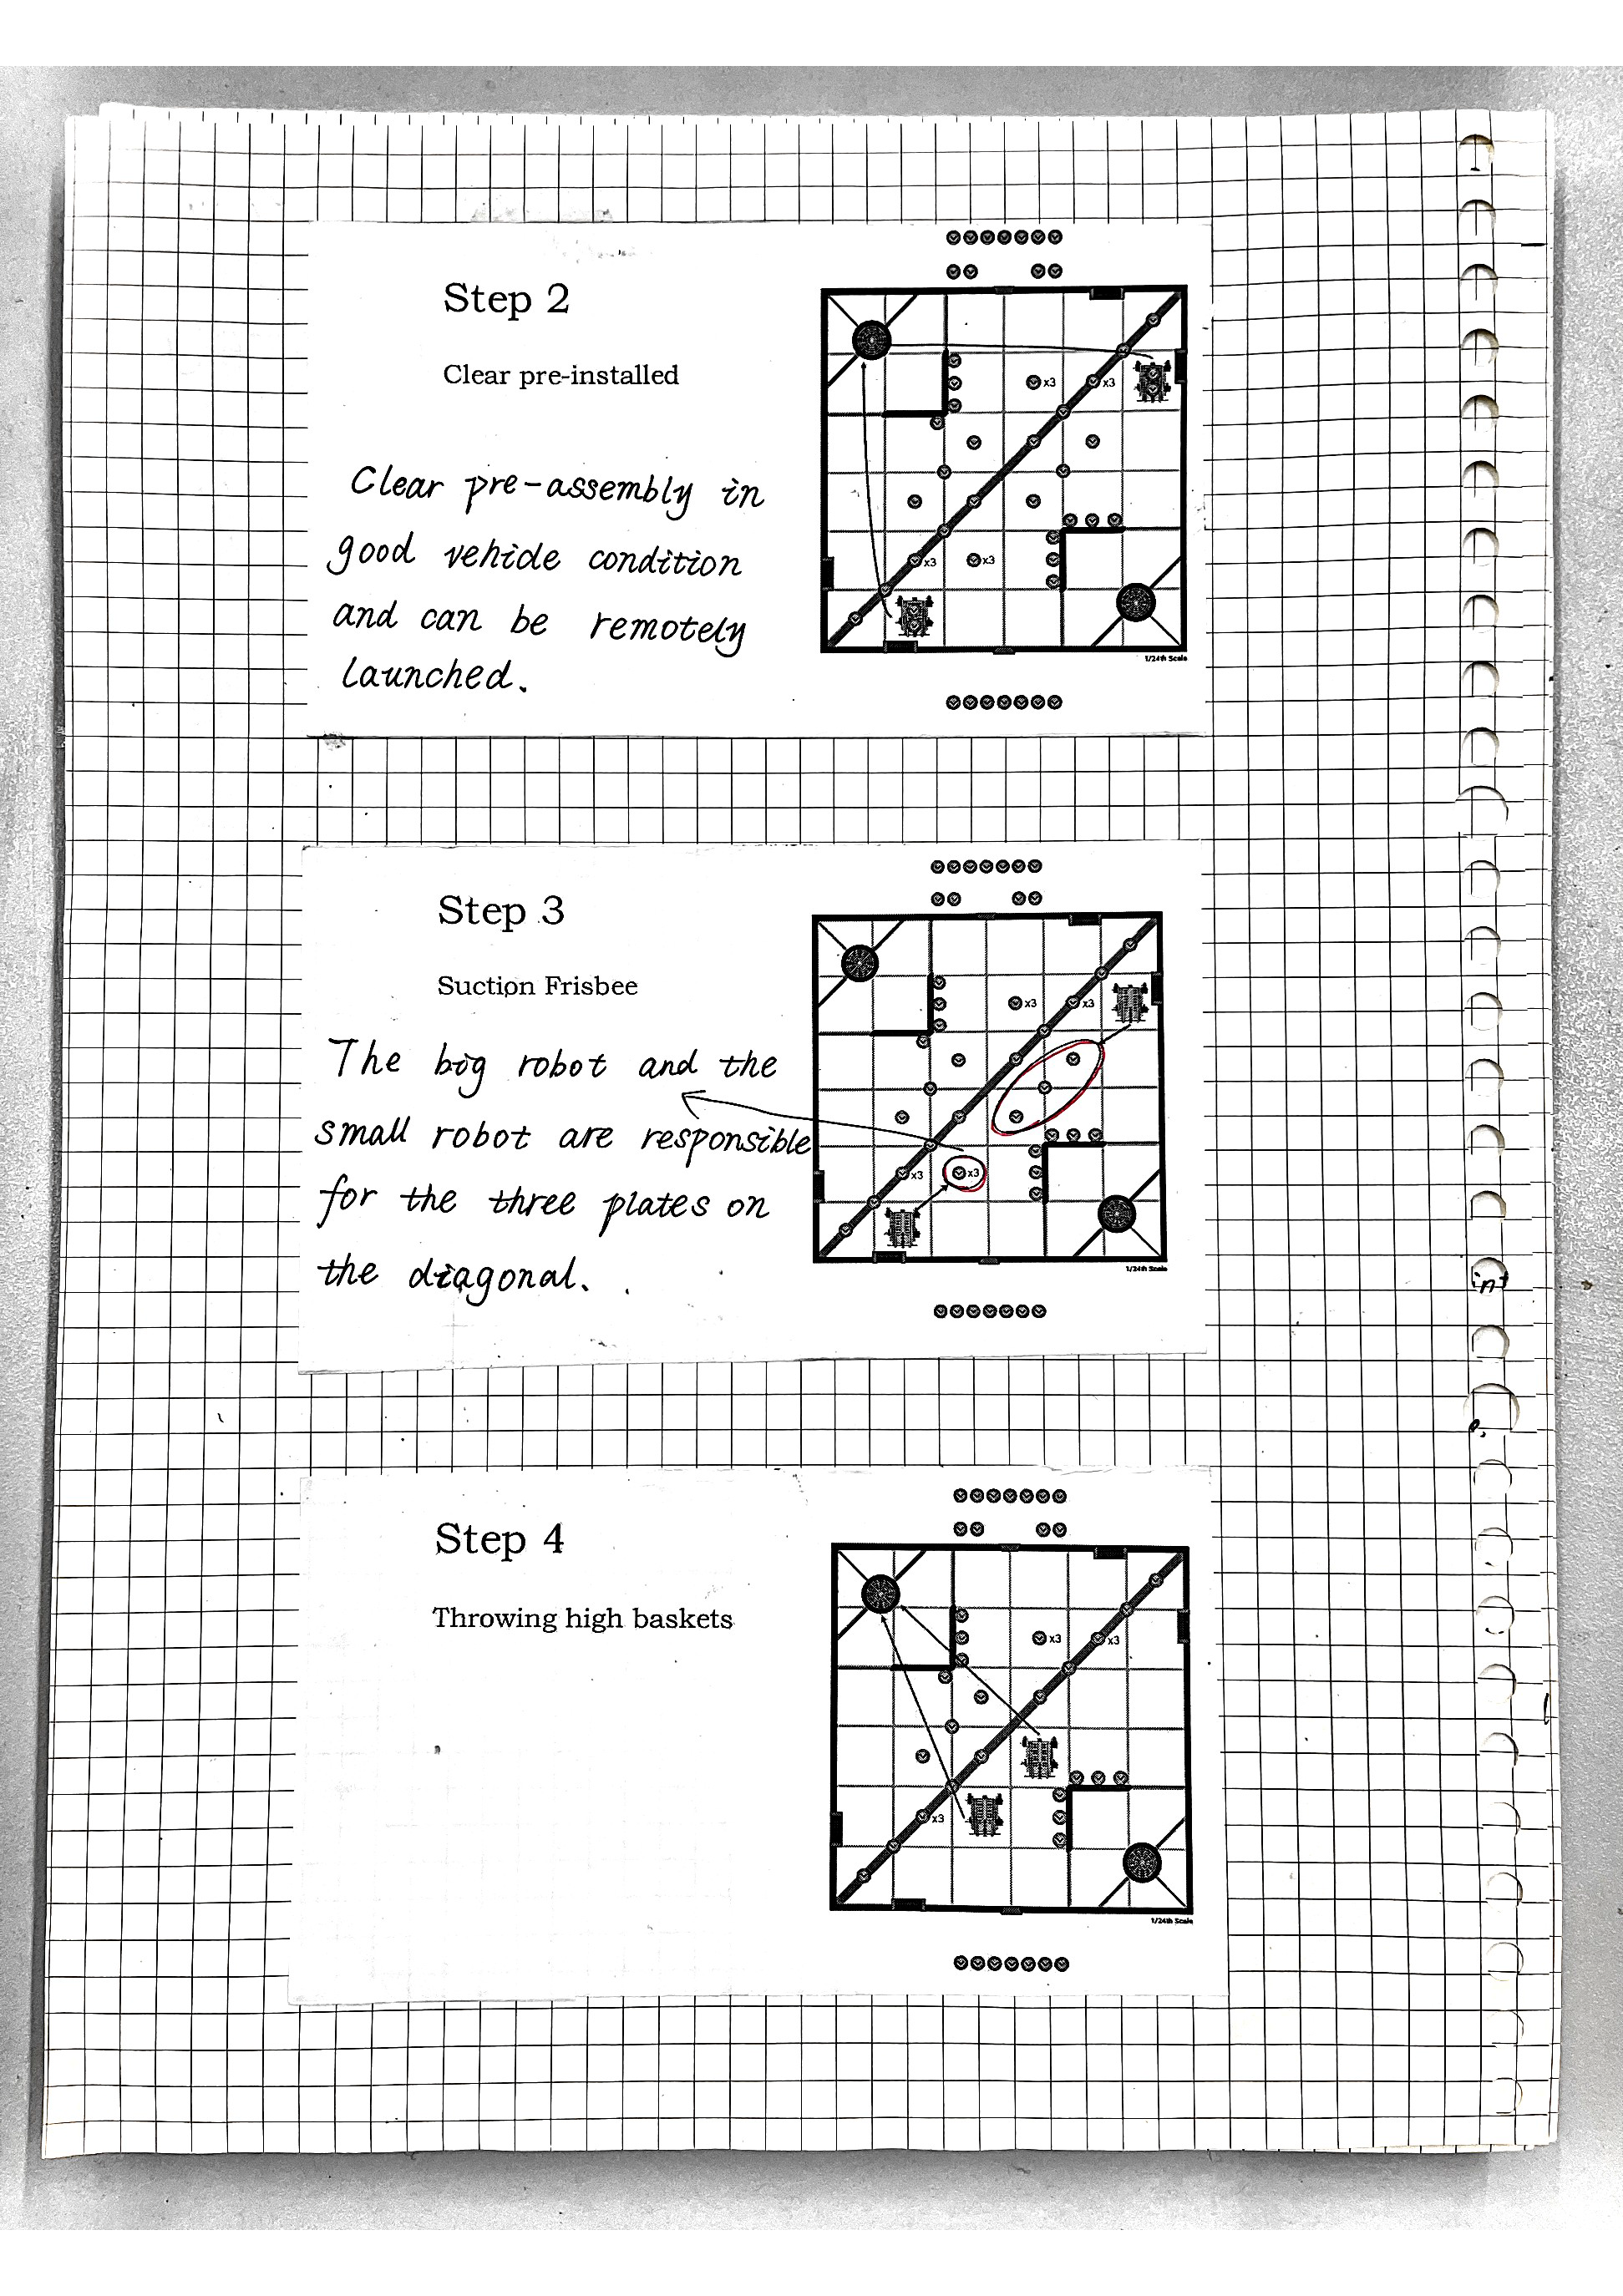 Step 2
Clear pre-installed
Clear pre-assembly in
good vehicle condition
and can be remotely
launched.
x3
x3
x3
x3
1/24th Scale
Step 3
Suction Frisbee
The big robot and the
small robot are responsible
for the three plates on
the diagonal.
x3
x3
x3
x3
1/24th Scale
int
Step 4
Throwing high baskets
x3
x3
x3
1/24th Scale